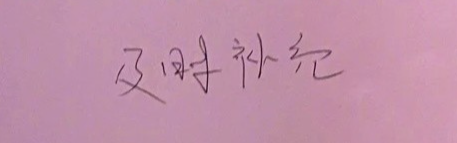 及时补充